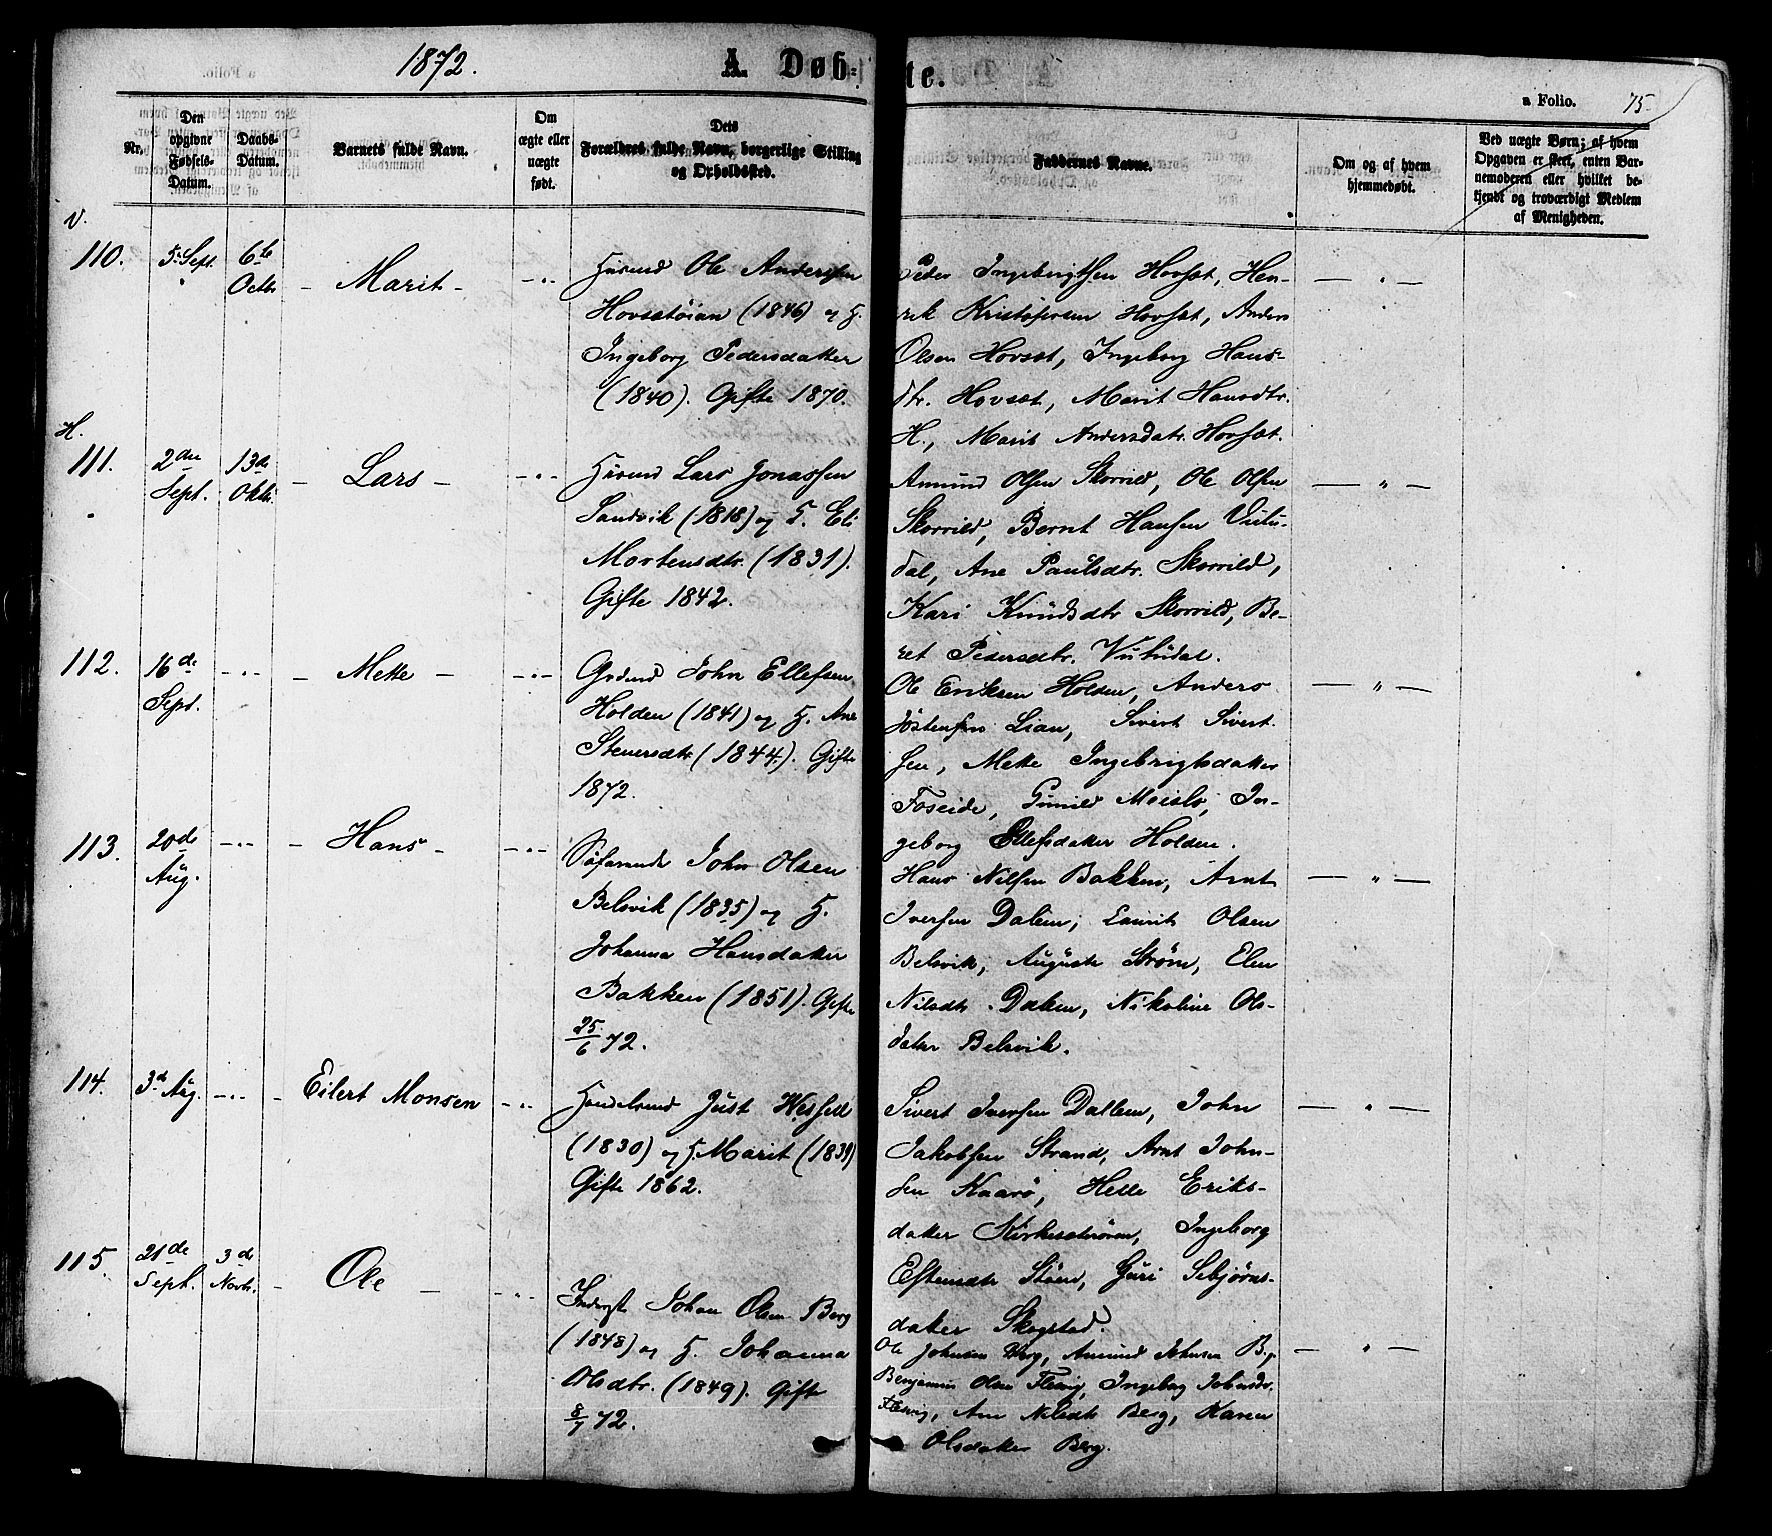 1872. A Døb- te. a Folio. 75
Nr.
Den opgivne Fødsels-Datum.
Daabs-Datum.
Barnets fulde Navn.
Om ægte eller uægte født.
Dets Forældres fulde Navn, borgerlige Stilling og Opholdssted.
Faddernes Navne.
Om og af hvem hjemmedøbt.
Ved uægte Børn; af hvem Opgaven er skeet, enten Barnemoderen eller hvilket bekjendt og troværdigt Medlem af Menigheden.
V.
110. 5. Sept. 6te Octbr – Marit – – " –
Husmd Ole Anderssen
Hovsetöian (1846) og H.
Ingeborg Pedersdatter
(1840). Gifte 1870.
Peder Ingebrigtsen Hovset, Hen-
rik Kristofersen Hovset, Anders
Olsen Hovset, Ingeborg Hans-
dtr. Hovset, Marit Hansdtr.
H., Marit Andersdatr. Hovset.
— " —
H.
111. 2den Sept. 13de Oktb. – Lars – – " –
Husmd Lars Jonassen
Sandvik (1818) og H. Eli
Mortensdtr. (1831).
Gifte 1842.
Amund Olsen Skorild, Ole Olsen
Skorrild, Bernt Hansen Vutu-
dal, Ane Paulsdtr. Skorrild,
Kari Knudsdtr Skorrild, Be-
ret Pedersdtr. Vutudal.
— " —
112. 16de Sept. – " – – Mette – – " –
Grdmd John Ellefsen
Holden (1841) og H. Ane
Steuersdtr (1844). Gifte
1872.
Ole Eriksen Holden, Anders
Jostensen Lian, Sivert Sivert-
sen, Mette Ingebrigtsdatter
Foseide, Gunild Meislo, In-
geborg Ellefsdatter Holden.
— " —
113. 20de Aug. – " – – Hans – – " –
Söfarende John Olsen
Belsvik (1835) og H.
Johanna Hansdatter
Bakken (1851). Gifte
25/6 72.
Hans Nilsen Bakken, Arnt
Iversen Dalem, Laurit Olsen
Belsvik, Auguste Ström, Elen
Nilsdtr Dalem, Nikoline Ols-
datter Belsvik.
— " —
114. 3de Aug. – " – – Eilert Monsen – " –
Handelsmd Just Wessell
(1830) og H. Marit (1839)
Gifte 1862.
Sivert Iversen Dallem, John
Jakobsen Strand, Arnt John-
sen Kaarö, Helle Eriks-
datter Kirkesetrören, Ingeborg
Estensdtr Stöen, Guri Sebjörns-
datter Skogstad.
— " —
115. 21de Sept. 3de Novbr. – Ole – – " –
Inderst Johan Olsen Berg
(1848) og H. Johanna
Olsdtr. (1849). Gifte
8/7 72.
Ole Johnsen Berg, Amund Johnsen B.,
Benjamin Olsen Flesvig, Ingeborg Johnsdr.
Flesvig, Ane Nilsdtr Berg, Karen
Olsdatter Berg.
— " —